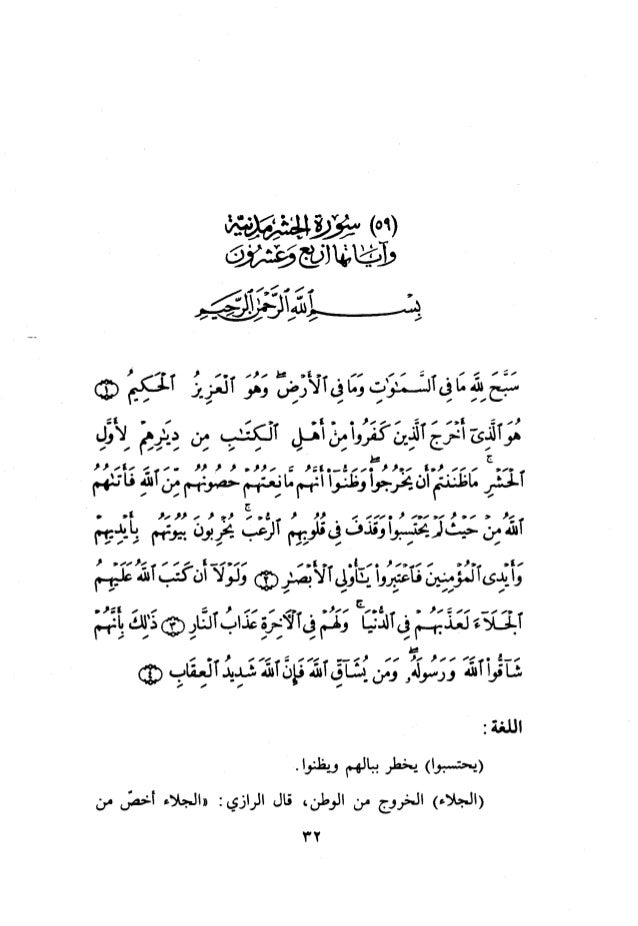 (٥٩) سُورَة الحَشْر مَدَنِيَّة
وَآيَاتهَا أربَع وَعِشْرُونَ
بِسْمِ ٱللَّهِ ٱلرَّحْمَٰنِ ٱلرَّحِيمِ
سَبَّحَ لِلَّهِ مَا فِى ٱلسَّمَٰوَٰتِ وَمَا فِى ٱلْأَرْضِۖ وَهُوَ ٱلْعَزِيزُ ٱلْحَكِيمُ ١
هُوَ ٱلَّذِىٓ أَخْرَجَ ٱلَّذِينَ كَفَرُوا۟ مِنْ أَهْلِ ٱلْكِتَٰبِ مِن دِيَٰرِهِمْ لِأَوَّلِ
ٱلْحَشْرِۚ مَا ظَنَنتُمْ أَن يَخْرُجُوا۟ۖ وَظَنُّوٓا۟ أَنَّهُم مَّانِعَتُهُمْ حُصُونُهُم مِّنَ ٱللَّهِ فَأَتَىٰهُمُ
ٱللَّهُ مِنْ حَيْثُ لَمْ يَحْتَسِبُوا۟ وَقَذَفَ فِى قُلُوبِهِمُ ٱلرُّعْبَۚ يُخْرِبُونَ بُيُوتَهُم بِأَيْدِيهِمْ
وَأَيْدِى ٱلْمُؤْمِنِينَ فَٱعْتَبِرُوا۟ يَٰٓأُو۟لِى ٱلْأَبْصَٰرِ ٢ وَلَوْلَآ أَن كَتَبَ ٱللَّهُ عَلَيْهِمُ
ٱلْجَلَآءَ لَعَذَّبَهُمْ فِى ٱلدُّنْيَاۖ وَلَهُمْ فِى ٱلْءَاخِرَةِ عَذَابُ ٱلنَّارِ ٣ ذَٰلِكَ بِأَنَّهُمْ
شَآقُّوا۟ ٱللَّهَ وَرَسُولَهُۥۖ وَمَن يُشَآقِّ ٱللَّهَ فَإِنَّ ٱللَّهَ شَدِيدُ ٱلْعِقَابِ ٤
اللغة :
(يحتسبوا) يخطر ببالهم ويظنوا.
(الجلاء) الخروج من الوطن، قال الرازي : «الجلاء أخصّ من
٣٢